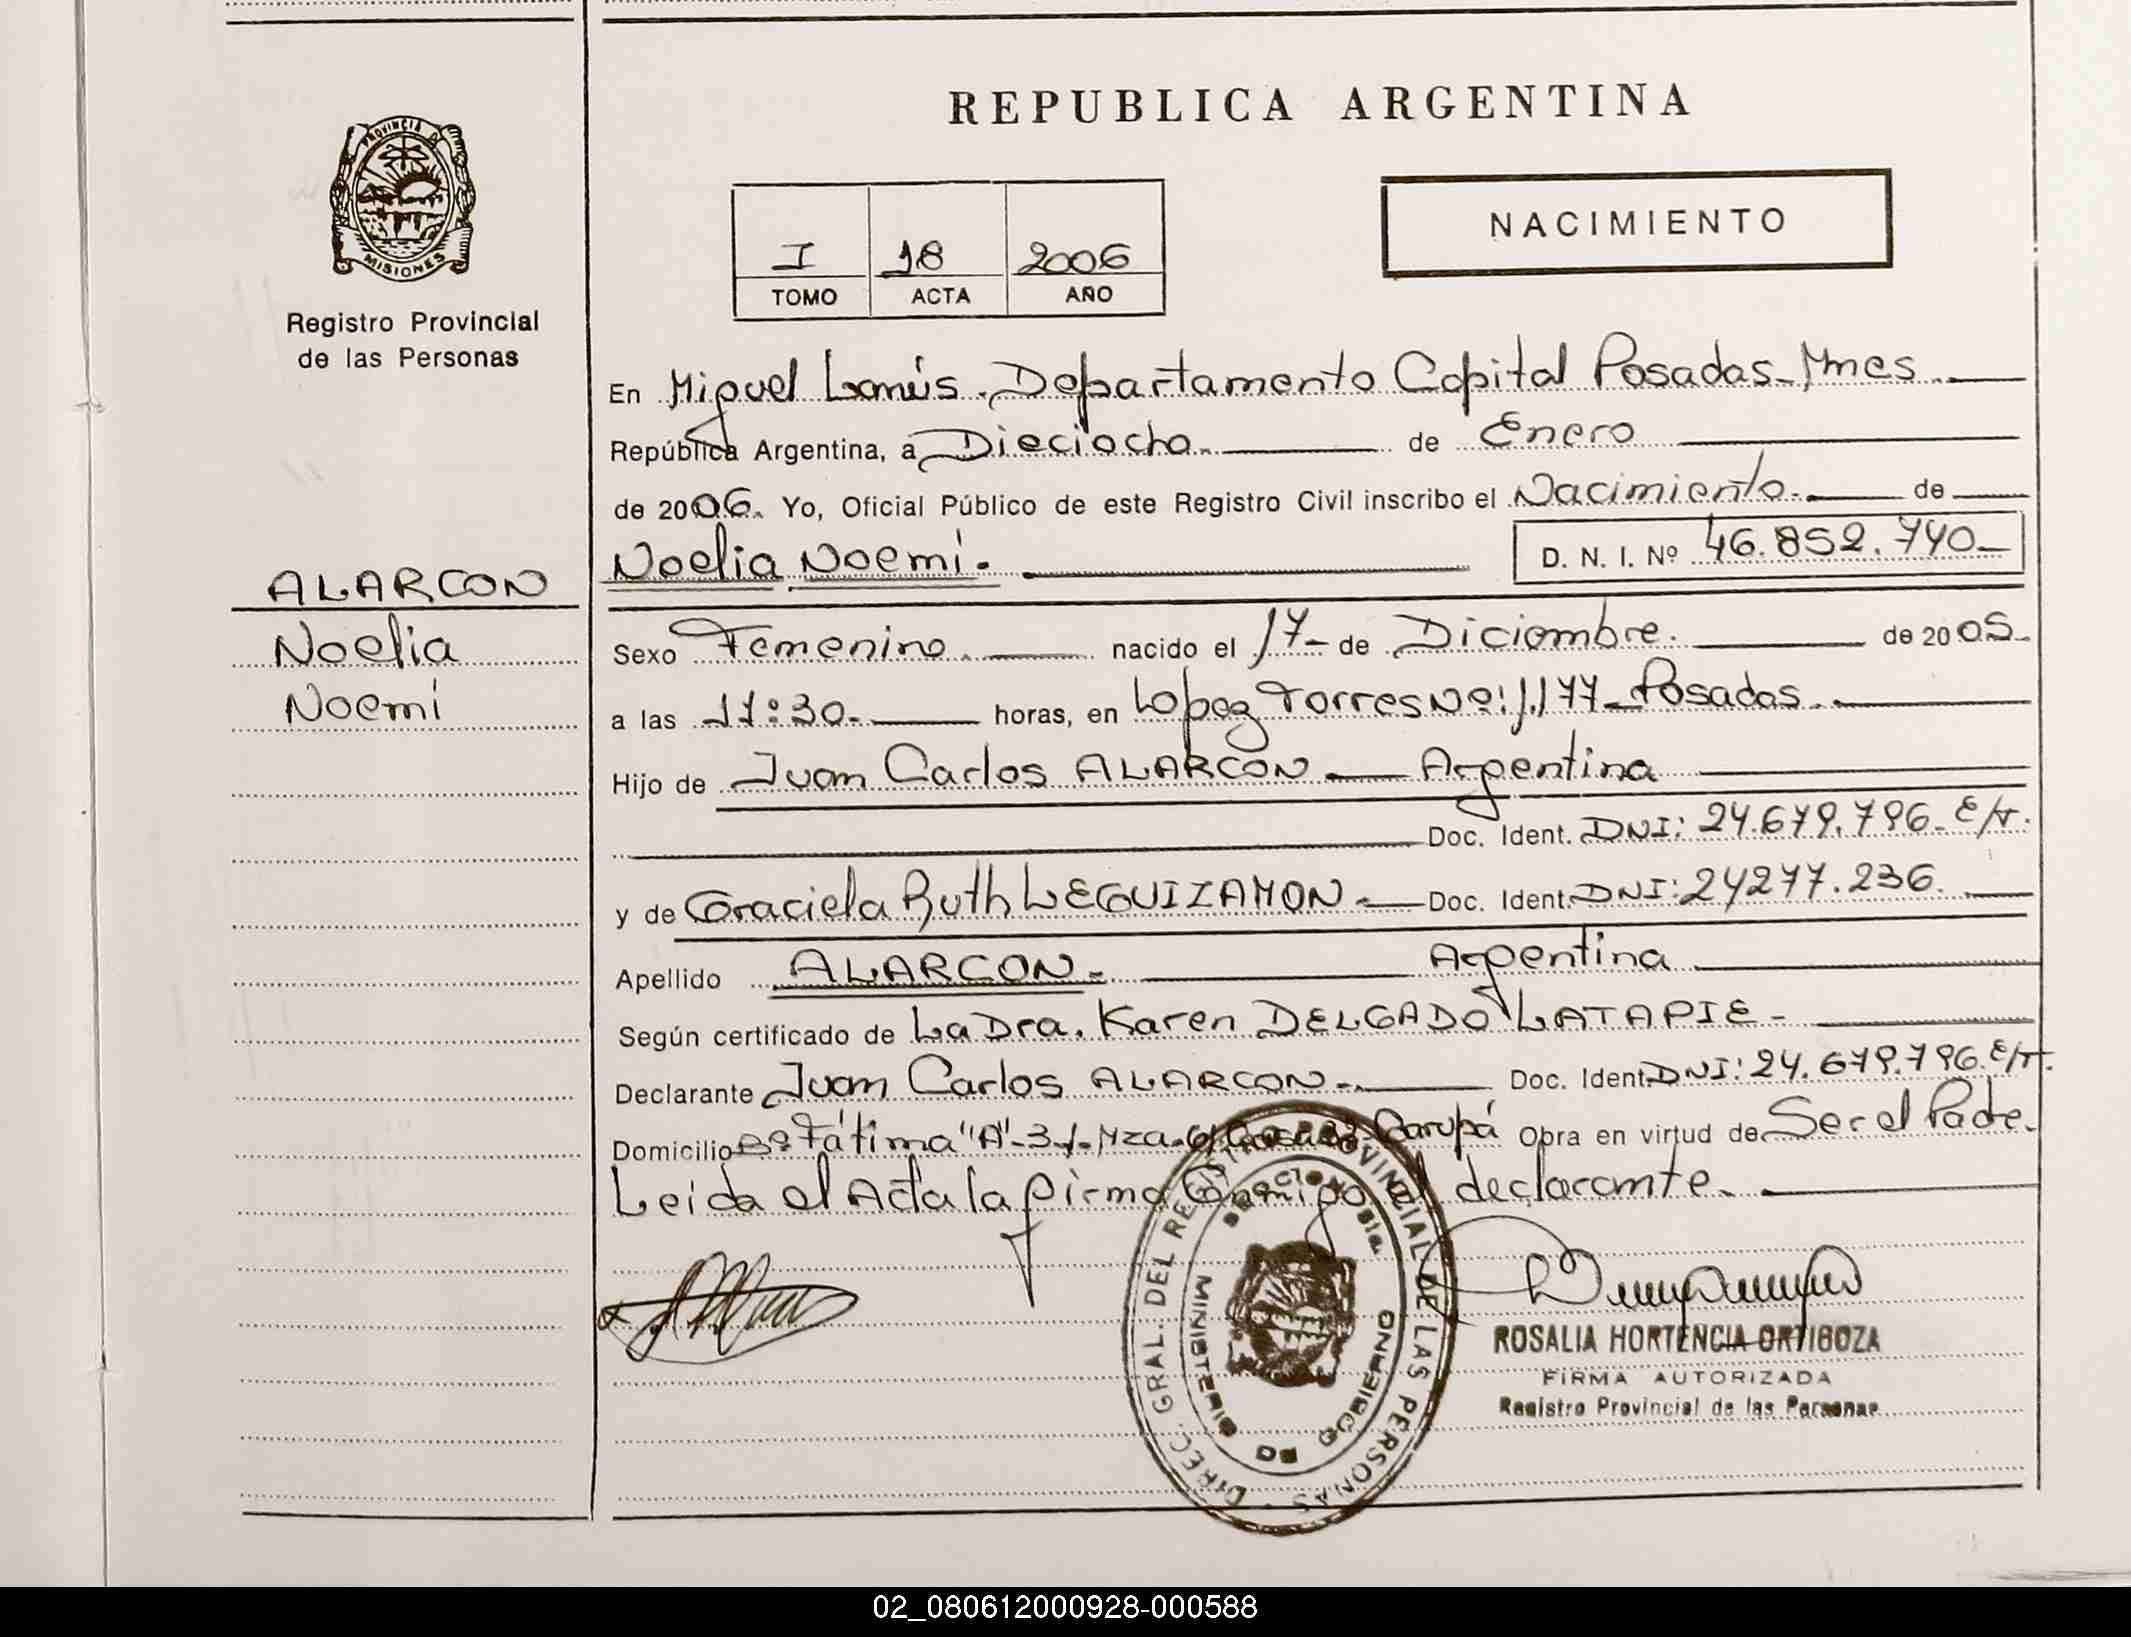 REPUBLICA ARGENTINA
PROVINCIA DE
MISIONES
Registro Provincial
de las Personas
I 18 2006
TOMO ACTA AÑO
NACIMIENTO
En Miguel Lanús. Departamento Capital Posadas-Mnes.
República Argentina, a Dieciocho. de Enero
de 2006. Yo, Oficial Público de este Registro Civil inscribo el Nacimiento. de
Noelia Noemí. D. N. I. Nº 46.852.740
ALARCON
Noelia
Noemí
Sexo Femenino. nacido el 17- de Diciembre. de 2005.
a las 11:30. horas, en Lopez Torres Nº: 1.177-Posadas.
Hijo de Juan Carlos ALARCON Argentina
Doc. Ident. DNI: 24.679.796. E/T.
y de Graciela Ruth LEGUIZAMON. Doc. Ident. DNI: 24277.236.
Apellido ALARCON. Argentina
Según certificado de La Dra. Karen DELGADO LATAPIE-
Declarante Juan Carlos ALARCON-. Doc. Ident. DNI: 24.679.796. E/T.
Domicilio Bº Fátima "A"-3/-Mza. Garupá Obra en virtud de Ser el Padre.
Leida el Acta la firma Conmigo el declarante.
DIREC. GRAL. DEL REGISTRO PROVINCIAL DE LAS PERSONAS
MINISTERIO DE GOBIERNO
ROSALIA HORTENCIA ORTIGOZA
FIRMA AUTORIZADA
Registro Provincial de las Personas
02_080612000928-000588